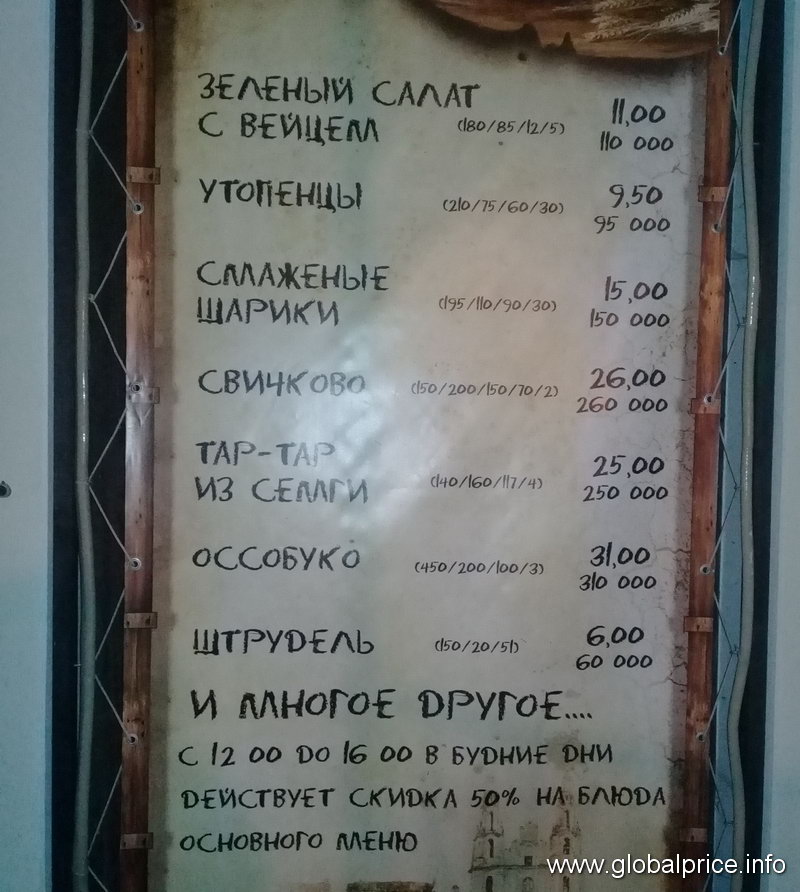 ЗЕЛЕНЫЙ САЛАТ
С ВЕЙЦЕМ (180/85/12/5) 11,00
110 000
УТОПЕНЦЫ (210/75/60/30) 9,50
95 000
СМАЖЕНЫЕ
ШАРИКИ (195/110/90/30) 15,00
150 000
СВИЧКОВО (150/200/150/70/2) 26,00
260 000
ТАР-ТАР
ИЗ СЕМГИ (140/160/117/4) 25,00
250 000
ОССОБУКО (450/200/100/3) 31,00
310 000
ШТРУДЕЛЬ (150/20/51) 6,00
60 000
И МНОГОЕ ДРУГОЕ....
С 12 00 ДО 16 00 В БУДНИЕ ДНИ
ДЕЙСТВУЕТ СКИДКА 50% НА БЛЮДА
ОСНОВНОГО МЕНЮ
www.globalprice.info